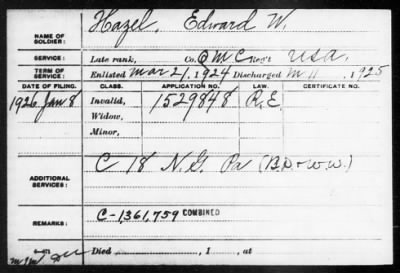 NAME OF SOLDIER: Hazel, Edward W.
SERVICE: Late rank, Co. Q M C Reg't U.S.A.
TERM OF SERVICE: Enlisted Mar 21, 1924 Discharged M 11, 1925
DATE OF FILING. CLASS. APPLICATION NO. LAW. CERTIFICATE NO.
1926 Jan 8 Invalid, 1529848 R.E.
Widow,
Minor,
ADDITIONAL SERVICES: C 18 N.G. Pa (B.D. & W.W.)
REMARKS: C-1,361,759 COMBINED
Died , 1 , at